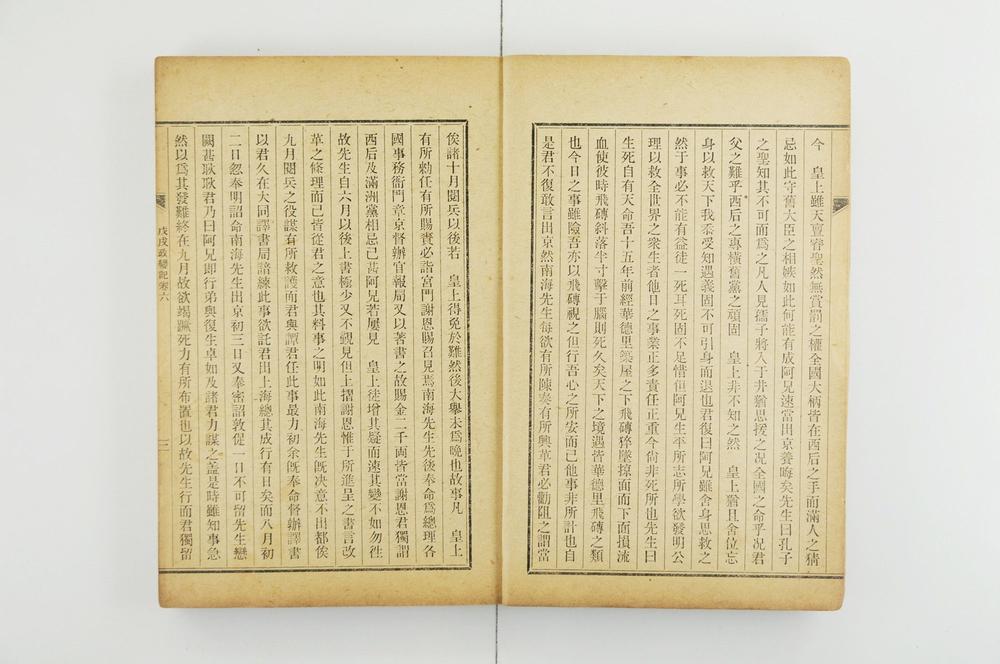 今　皇上雖天亶睿聖然無賞罰之權全國大柄皆在西后之手而滿人之猜
忌如此守舊大臣之相嫉如此何能有成阿兄速當出京養晦矣先生曰孔子
之聖知其不可而爲之凡人見孺子將入于井猶思援之况全國之命乎况君
父之難乎西后之專橫舊黨之頑固　皇上非不知之然　皇上猶且舍位忘
身以救天下我忝受知遇義固不可引身而退也君復曰阿兄雖舍身思救之
然于事必不能有益徒一死耳死固不足惜但阿兄生平所志所學欲發明公
理以救全世界之衆生者他日之事業正多責任正重今尙非死所也先生曰
生死自有天命吾十五年前經華德里築屋之下飛磚猝墜掠面而下面損流
血使彼時飛磚斜落半寸擊于腦則死久矣天下之境遇皆華德里飛磚之類
也今日之事雖險吾亦以飛磚視之但行吾心之所安而已他事非所計也自
是君不復敢言出京然南海先生每欲有所陳奏有所興革君必勸阻之謂當
俟諸十月閱兵以後若　皇上得免於難然後大舉未爲晚也故事凡　皇上
有所勅任有所賜賚必詣宮門謝恩賜召見焉南海先生先後奉命爲總理各
國事務衙門章京督辦官報局又以著書之故賜金二千兩皆當謝恩君獨謂
西后及滿洲黨相忌已甚阿兄若屢見　皇上徒增其疑而速其變不如勿往
故先生自六月以後上書極少又不覲見但上摺謝恩惟于所進呈之書言改
革之條理而已皆從君之意也其料事之明如此南海先生旣决意不出都俟
九月閱兵之役謀有所救護而君與譚君任此事最力初余旣奉命督辦譯書
以君久在大同譯書局諳練此事欲託君出上海總其成行有日矣而八月初
二日忽奉明詔命南海先生出京初三日又奉密詔敦促一日不可留先生戀
闕甚耿耿君乃曰阿兄即行弟與復生卓如及諸君力謀之盖是時雖知事急
然以爲其發難終在九月故欲竭蹶死力有所布置也以故先生行而君獨留
戊戌政變記卷六